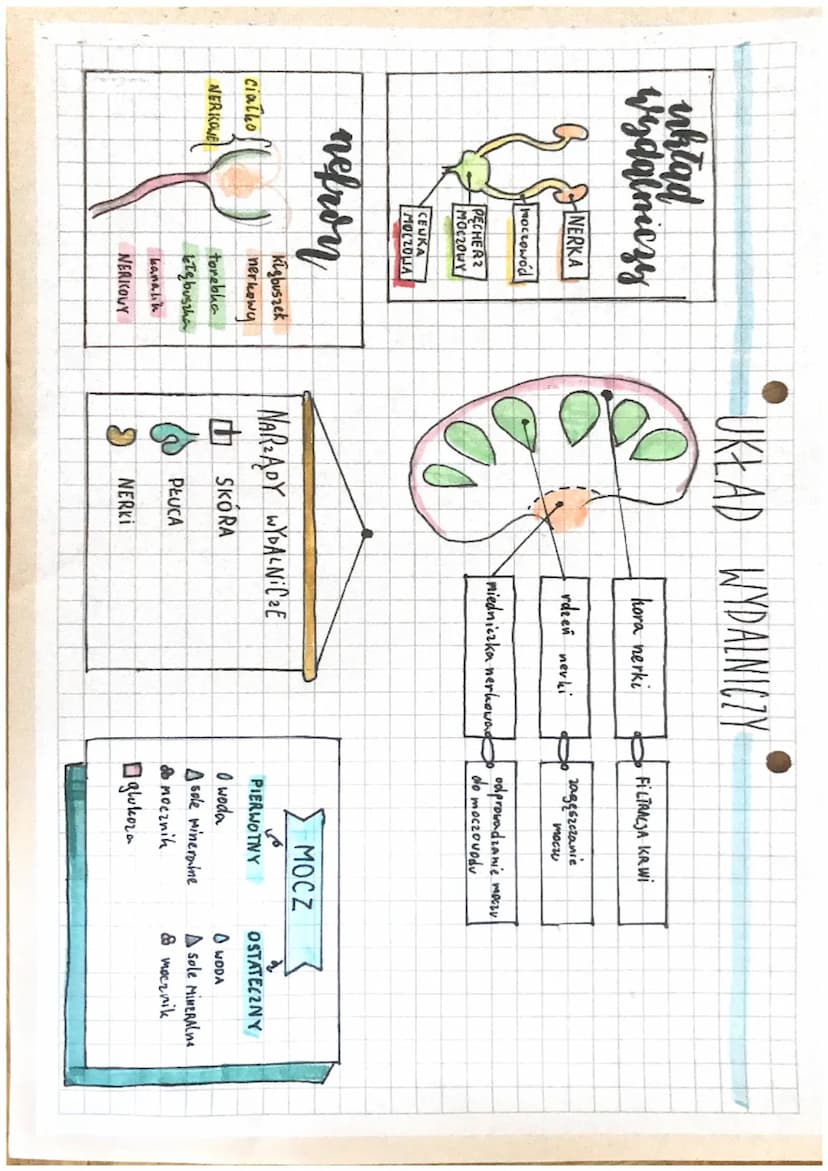 UKŁAD WYDALNICZY
układ
wydalniczy
NERKA
moczowód
PĘCHERZ
MOCZOWY
CEWKA
MOCZOWA
kora nerki
FILTRACJA KRWI
rdzeń nerki
zagęszczanie
moczu
miedniczka nerkowa
odprowadzanie moczu
do moczowodu
nefron
ciałko
NERKOWE
kłębuszek
nerkowy
torebka
kłębuszka
kanalik
NERKOWY
NARZĄDY WYDALNICZE
SKÓRA
PŁUCA
NERKI
MOCZ
PIERWOTNY
woda
sole mineralne
mocznik
glukoza
OSTATECZNY
WODA
sole mineralne
mocznik